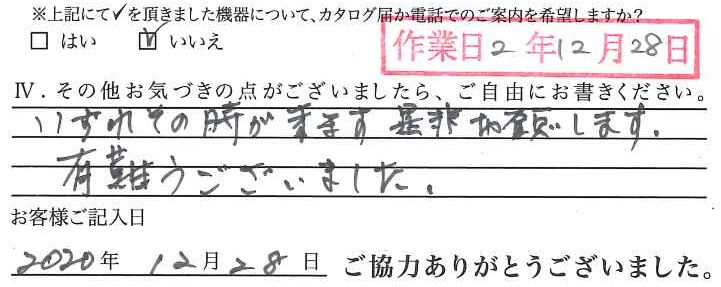 ※上記にて✓を頂きました機器について、カタログ届か電話でのご案内を希望しますか？
□ はい ☑ いいえ
作業日 2 年 12 月 28 日
Ⅳ．その他お気づきの点がございましたら、ご自由にお書きください。
いずれその時が来ます 是非お願いします。
有難うございました。
お客様ご記入日
2020 年 12 月 28 日 ご協力ありがとうございました。